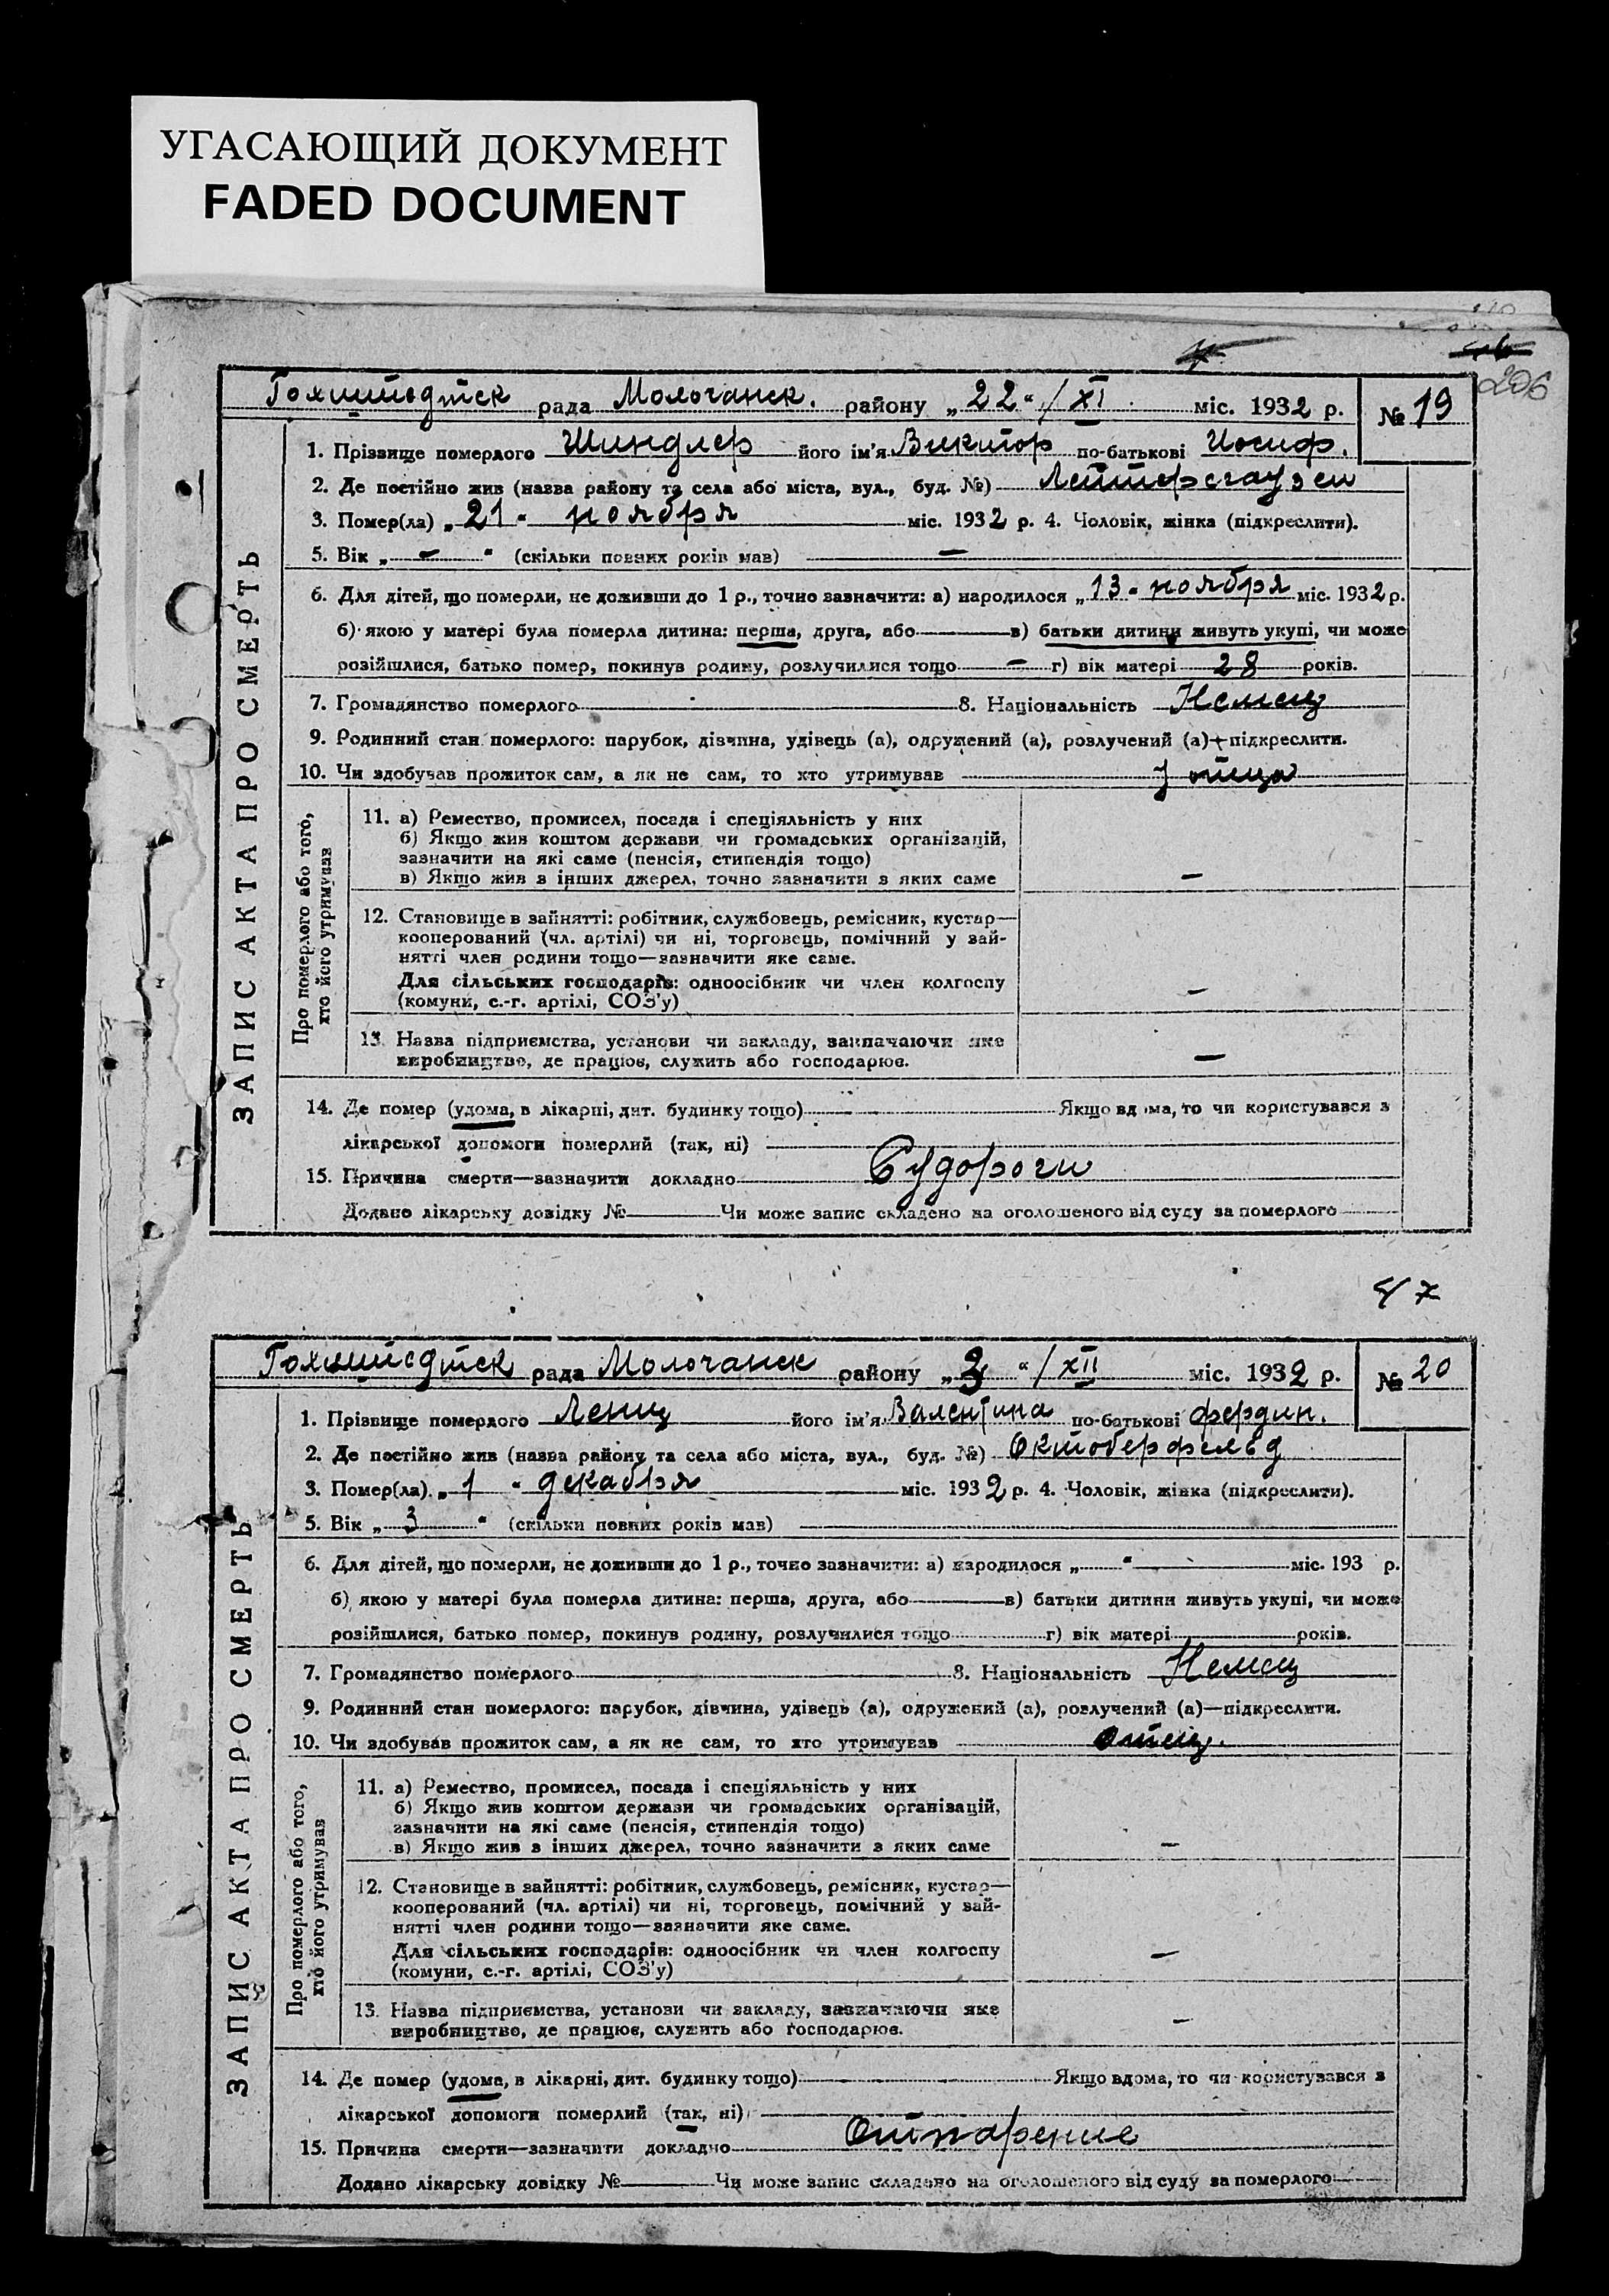 УГАСАЮЩИЙ ДОКУМЕНТ
FADED DOCUMENT
206
Гохштедтск рада Молочанск. району „22“/XI міс. 1932 р. № 19
ЗАПИС АКТА ПРО СМЕРТЬ
1. Прізвище померлого Шиндлер його ім'я Виктор по-батькові Иосиф.
2. Де постійно жив (назва району та села або міста, вул., буд. №) Лейтерсгаузен
3. Помер(ла) „21“ ноября міс. 1932 р. 4. Чоловік, жінка (підкреслити).
5. Вік „ — “ (скільки повних років мав) —
6. Для дітей, що померли, не доживши до 1 р., точно зазначити: а) народилося „13“ ноября міс. 1932 р.
б) якою у матері була померла дитина: перша, друга, або — в) батьки дитини живуть укупі, чи може
розійшлися, батько помер, покинув родину, розлучилися тощо — г) вік матері 28 років.
7. Громадянство померлого 8. Національність Немец
9. Родинний стан померлого: парубок, дівчина, удівець (а), одружений (а), розлучений (а)—підкреслити.
10. Чи здобував прожиток сам, а як не сам, то хто утримував у отца
Про померлого або того,
хто його утримував
11. а) Ремество, промисел, посада і спеціяльність у них
б) Якщо жив коштом держави чи громадських організацій,
зазначити на які саме (пенсія, стипендія тощо)
в) Якщо жив в інших джерел, точно зазначити з яких саме —
12. Становище в зайнятті: робітник, службовець, ремісник, кустар—
кооперований (чл. артілі) чи ні, торговець, помічний у зай-
нятті член родини тощо—зазначити яке саме.
Для сільських господарів: одноосібник чи член колгоспу
(комуни, с.-г. артілі, СОЗ'у) —
13. Назва підприємства, установи чи закладу, зазначаючи яке
виробництво, де працює, служить або господарює. —
14. Де помер (удома, в лікарні, дит. будинку тощо) Якщо вдома, то чи користувався з
лікарської допомоги померлий (так, ні)
15. Причина смерти—зазначити докладно Судороги
Додано лікарську довідку № Чи може запис складено на оголошеного від суду за померлого
47
Гохштедтск рада Молочанск району „3“/XII міс. 1932 р. № 20
ЗАПИС АКТА ПРО СМЕРТЬ
1. Прізвище померлого Ленц його ім'я Валентина по-батькові Фердин.
2. Де постійно жив (назва району та села або міста, вул., буд. №) Октоберфельд
3. Помер(ла) „1“ декабря міс. 1932 р. 4. Чоловік, жінка (підкреслити).
5. Вік „3“ (скільки повних років мав)
6. Для дітей, що померли, не доживши до 1 р., точно зазначити: а) народилося „ “ міс. 193 р.
б) якою у матері була померла дитина: перша, друга, або в) батьки дитини живуть укупі, чи може
розійшлися, батько помер, покинув родину, розлучилися тощо г) вік матері років.
7. Громадянство померлого 8. Національність Немец
9. Родинний стан померлого: парубок, дівчина, удівець (а), одружений (а), розлучений (а)—підкреслити.
10. Чи здобував прожиток сам, а як не сам, то хто утримував отец.
Про померлого або того,
хто його утримував
11. а) Ремество, промисел, посада і спеціяльність у них
б) Якщо жив коштом держави чи громадських організацій,
зазначити на які саме (пенсія, стипендія тощо)
в) Якщо жив в інших джерел, точно зазначити з яких саме —
12. Становище в зайнятті: робітник, службовець, ремісник, кустар—
кооперований (чл. артілі) чи ні, торговець, помічний у зай-
нятті член родини тощо—зазначити яке саме.
Для сільських господарів: одноосібник чи член колгоспу
(комуни, с.-г. артілі, СОЗ'у) —
13. Назва підприємства, установи чи закладу, зазначаючи яке
виробництво, де працює, служить або господарює. —
14. Де помер (удома, в лікарні, дит. будинку тощо) Якщо вдома, то чи користувався з
лікарської допомоги померлий (так, ні)
15. Причина смерти—зазначити докладно
Додано лікарську довідку № Чи може запис складено на оголошеного від суду за померлого